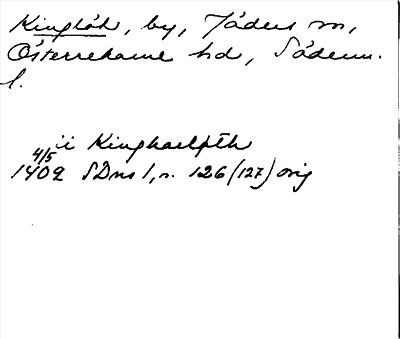 Kinglöth, by, Jäders sn,
Österrekarne hd, Söderm.
l.
ii Kinghaelpth
4/5
1402 SDns 1, n. 126 (127) orig